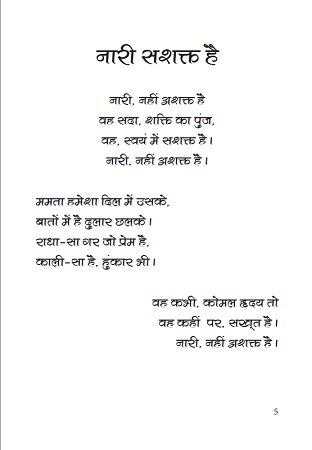 नारी सशक्त है
नारी, नहीं अशक्त है
वह सदा, शक्ति का पुंज,
वह, स्वयं में सशक्त है।
नारी, नहीं अशक्त है।
ममता हमेशा दिल में उसके,
बातों में है दुलार छलके।
राधा-सा गर जो प्रेम है,
काली-सा है, हुंकार भी।
वह कभी, कोमल हृदय तो
वह कहीं पर, सख़्त है।
नारी, नहीं अशक्त है।
5